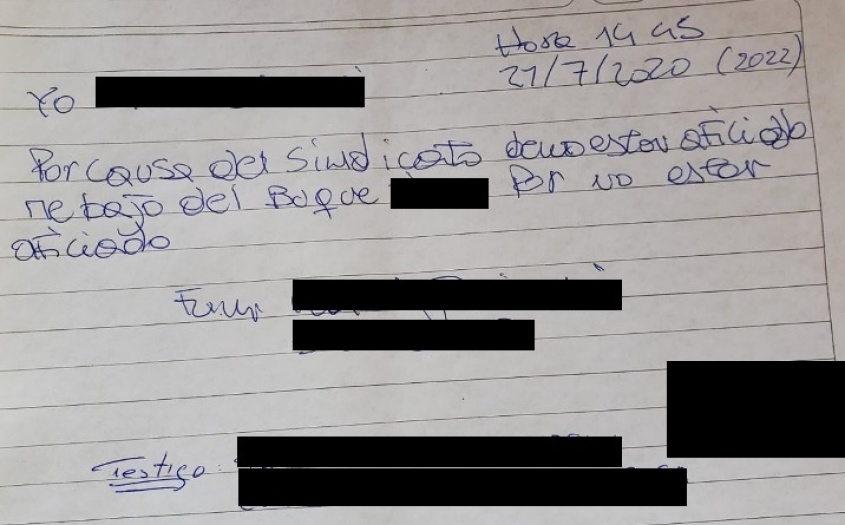 Hora 14 45
21/7/2020 (2022)
Yo
Por causa del Sindicato devo estar aficiado
me bajo del Buque Por no estar
aficiado
Firma
Testigo: